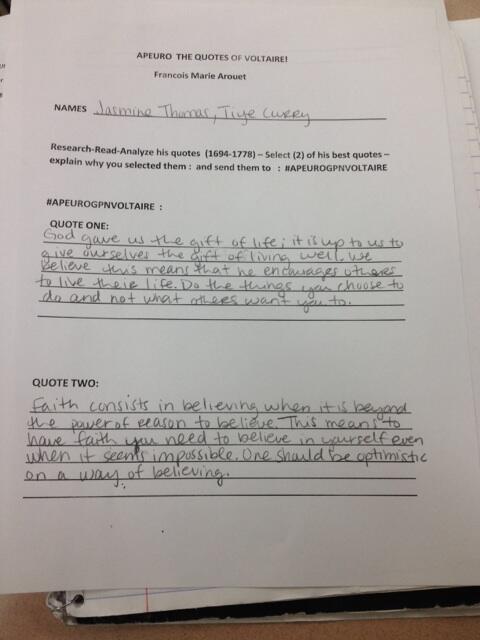 APEURO THE QUOTES OF VOLTAIRE!
Francois Marie Arouet
NAMES Jasmine Thomas, Tiye Curry
Research-Read-Analyze his quotes (1694-1778) – Select (2) of his best quotes –
explain why you selected them : and send them to : #APEUROGPNVOLTAIRE
#APEUROGPNVOLTAIRE :
QUOTE ONE:
God gave us the gift of life; it is up to us to
give ourselves the gift of living well. We
believe this means that he encourages others
to live their life. Do the things you choose to
do and not what others want you to.
QUOTE TWO:
Faith consists in believing when it is beyond
the power of reason to believe. This means to
have faith you need to believe in yourself even
when it seems impossible. One should be optimistic
on a way of believing.